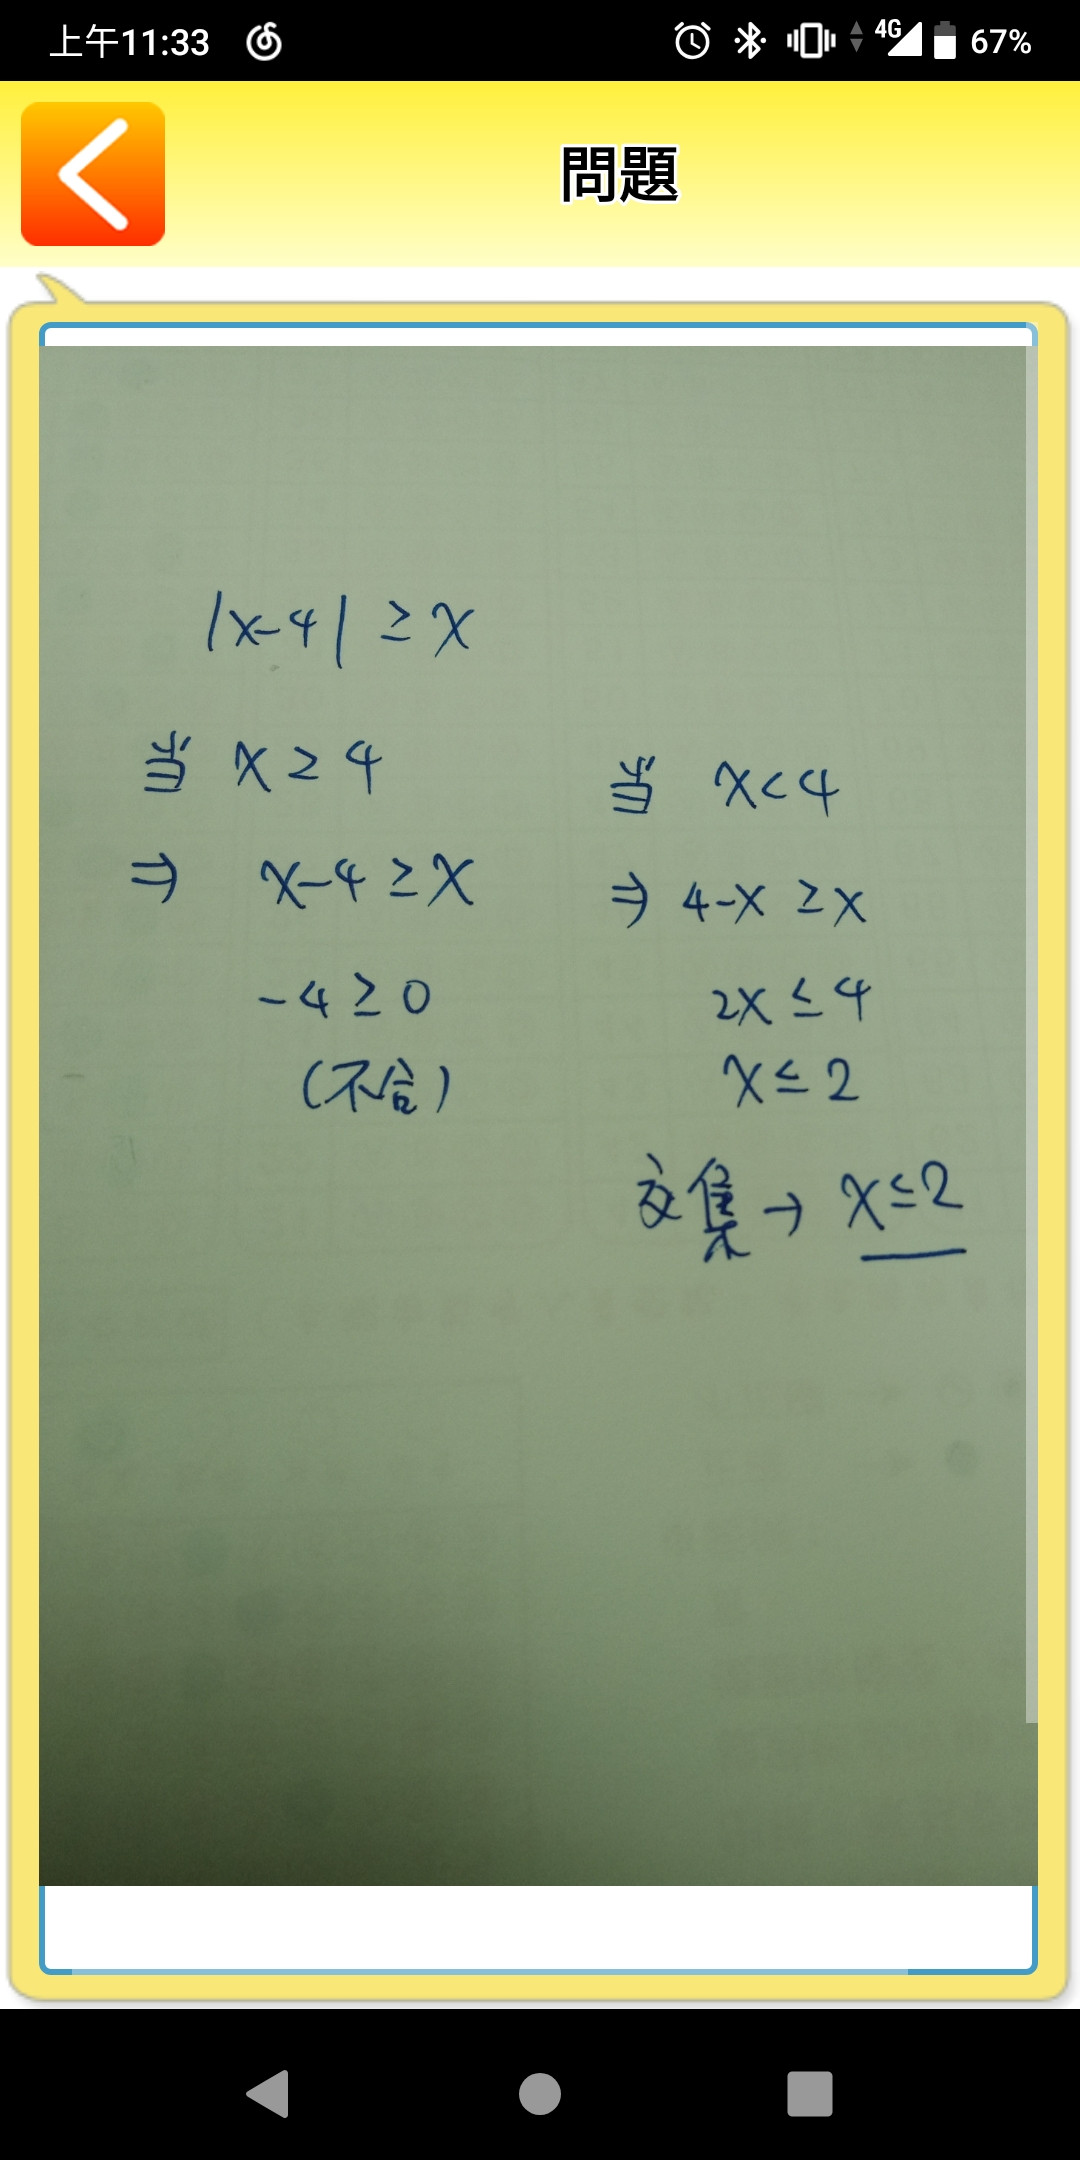 上午11:33 4G 67%
問題
|x-4| ≥ x
当 x ≥ 4
⇒ x-4 ≥ x
-4 ≥ 0
(不合)
当 x < 4
⇒ 4-x ≥ x
2x ≤ 4
x ≤ 2
交集 → x ≤ 2